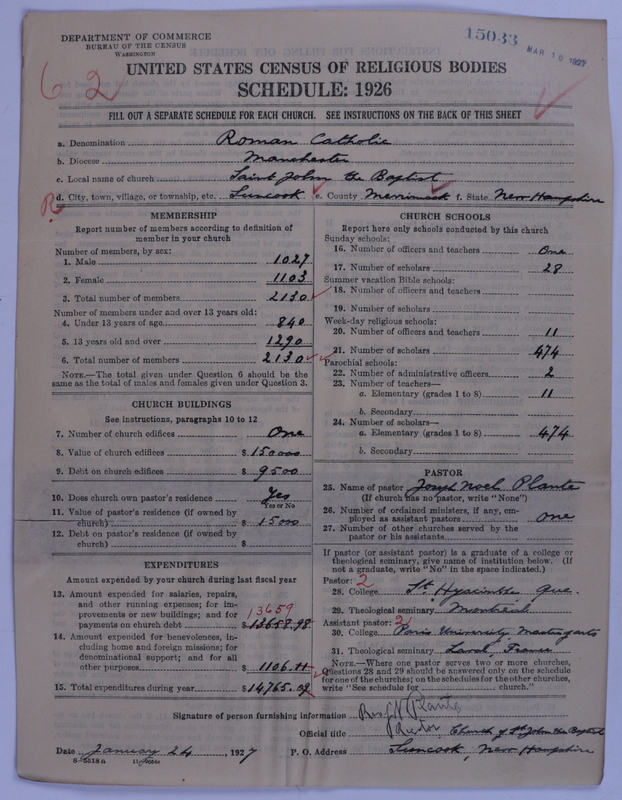 DEPARTMENT OF COMMERCE
BUREAU OF THE CENSUS
WASHINGTON
15033
MAR 10 1927
62
UNITED STATES CENSUS OF RELIGIOUS BODIES
SCHEDULE: 1926
FILL OUT A SEPARATE SCHEDULE FOR EACH CHURCH. SEE INSTRUCTIONS ON THE BACK OF THIS SHEET
a. Denomination Roman Catholic
b. Diocese Manchester
c. Local name of church Saint John the Baptist
d. City, town, village, or township, etc. Suncook e. County Merrimack f. State New Hampshire
R
MEMBERSHIP
Report number of members according to definition of member in your church
Number of members, by sex:
1. Male 1027
2. Female 1103
3. Total number of members 2130
Number of members under and over 13 years old:
4. Under 13 years of age 840
5. 13 years old and over 1290
6. Total number of members 2130
NOTE.—The total given under Question 6 should be the same as the total of males and females given under Question 3.
CHURCH BUILDINGS
See instructions, paragraphs 10 to 12
7. Number of church edifices One
8. Value of church edifices $150000
9. Debt on church edifices $9500
10. Does church own pastor's residence Yes
Yes or No
11. Value of pastor's residence (if owned by church) $15000
12. Debt on pastor's residence (if owned by church) $
EXPENDITURES
Amount expended by your church during last fiscal year
13. Amount expended for salaries, repairs, and other running expenses; for improvements or new buildings; and for payments on church debt $13658.98
13659
14. Amount expended for benevolences, including home and foreign missions; for denominational support; and for all other purposes 1106.11
15. Total expenditures during year $14765.09
CHURCH SCHOOLS
Report here only schools conducted by this church
Sunday schools:
16. Number of officers and teachers One
17. Number of scholars 28
Summer vacation Bible schools:
18. Number of officers and teachers
19. Number of scholars
Week-day religious schools:
20. Number of officers and teachers 11
21. Number of scholars 474
Parochial schools:
22. Number of administrative officers 2
23. Number of teachers—
a. Elementary (grades 1 to 8) 11
b. Secondary
24. Number of scholars—
a. Elementary (grades 1 to 8) 474
b. Secondary
PASTOR
25. Name of pastor Joseph Noel Plante
(If church has no pastor, write "None")
26. Number of ordained ministers, if any, employed as assistant pastors one
27. Number of other churches served by the pastor or his assistants
If pastor (or assistant pastor) is a graduate of a college or theological seminary, give name of institution below. (If not a graduate, write "No" in the space indicated.)
Pastor: 2
28. College St. Hyacinthe Que.
29. Theological seminary Montreal
Assistant pastor: 2
30. College Paris University, Master of arts
31. Theological seminary Laval, France
NOTE.—Where one pastor serves two or more churches, Questions 28 and 29 should be answered only on the schedule for one of the churches; on the schedules for the other churches, write "See schedule for church."
Signature of person furnishing information Rev J N Plante
Official title Rector, Church of St John the Baptist
Date January 24, 1927 P. O. Address Suncook, New Hampshire
8-5518a